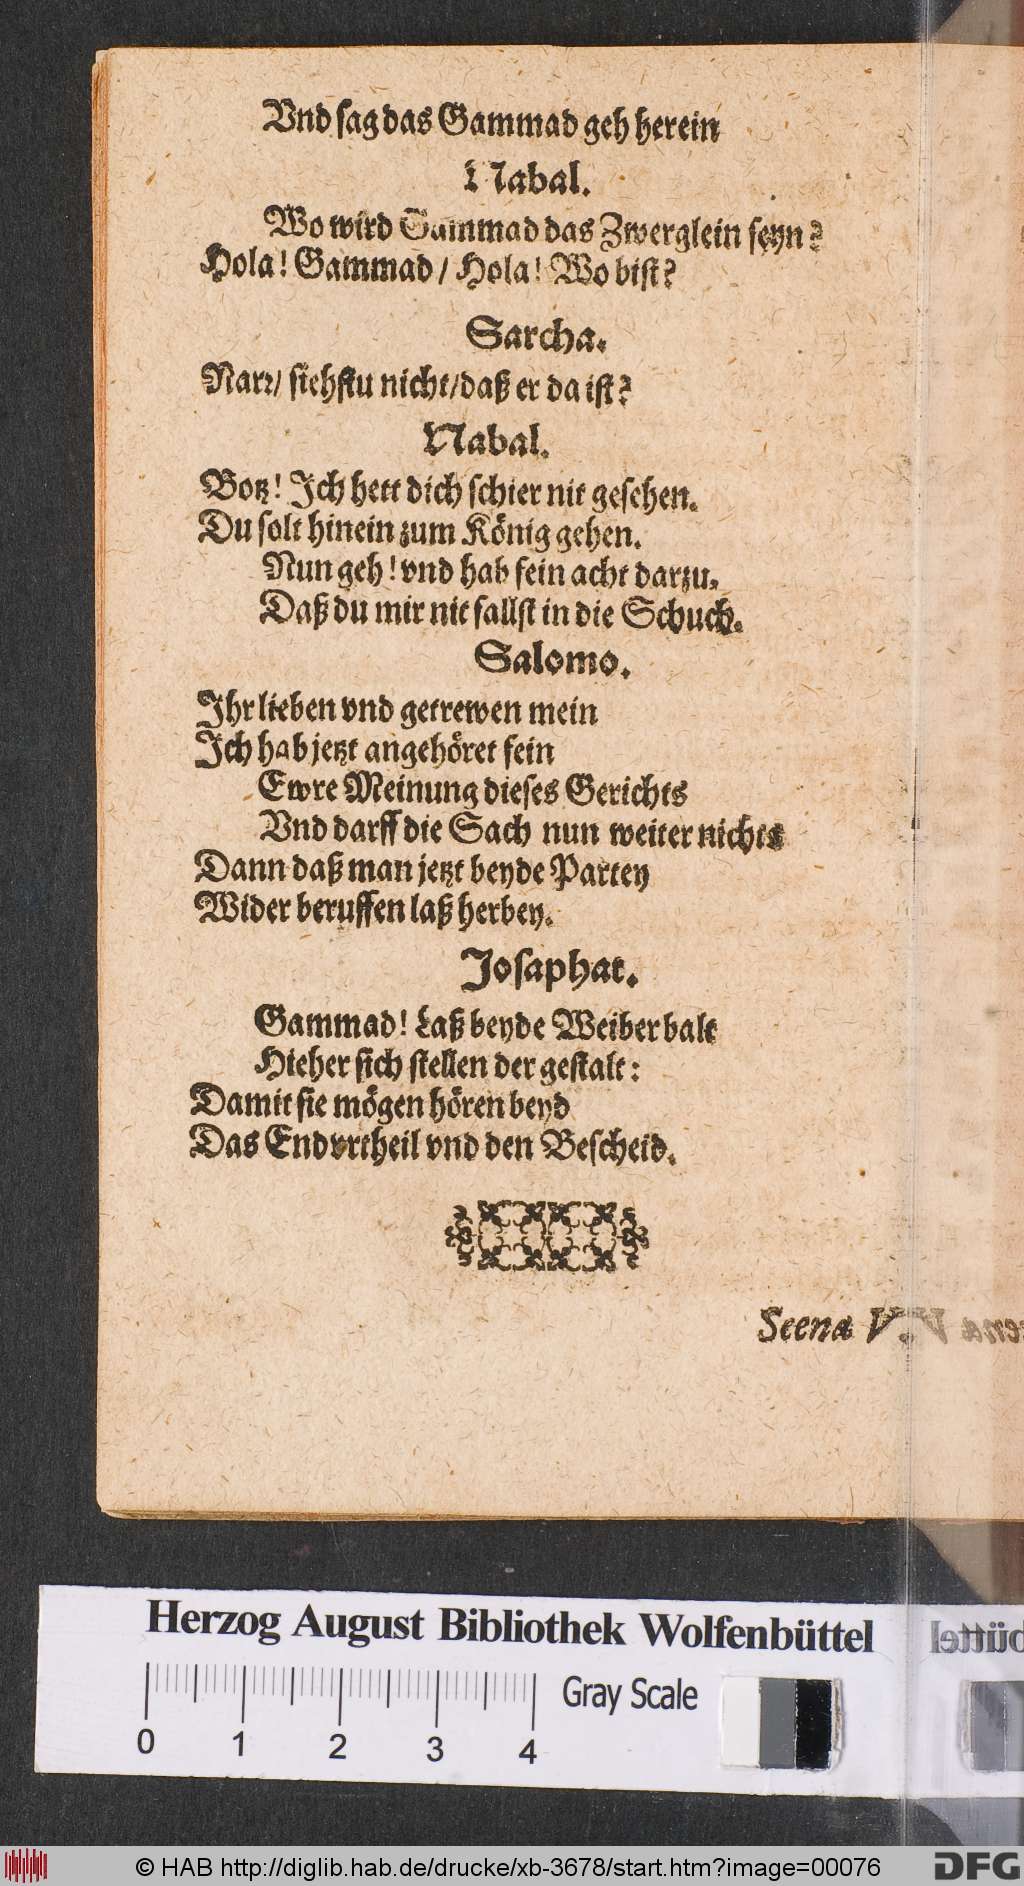 Vnd sag das Gammad geh herein
Nabal.
Wo wird Gammad das Zwerglein seyn?
Hola! Gammad / Hola! Wo bist?
Sarcha.
Narr / siehstu nicht / daß er da ist?
Nabal.
Botz! Ich hett dich schier nit gesehen.
Du solt hinein zum König gehen.
Nun geh! vnd hab fein acht darzu,
Daß du mir nit fallst in die Schuch.
Salomo.
Ihr lieben vnd getrewen mein
Ich hab jetzt angehöret fein
Ewre Meinung dieses Gerichts
Vnd darff die Sach nun weiter nichts
Dann daß man jetzt beyde Partey
Wider beruffen laß herbey.
Josaphat.
Gammad! Laß beyde Weiber balt
Hieher sich stellen der gestalt:
Damit sie mögen hören beyd
Das Endvrtheil vnd den Bescheid.
Scena V.
Herzog August Bibliothek Wolfenbüttel
0 1 2 3 4
Gray Scale
© HAB http://diglib.hab.de/drucke/xb-3678/start.htm?image=00076
DFG